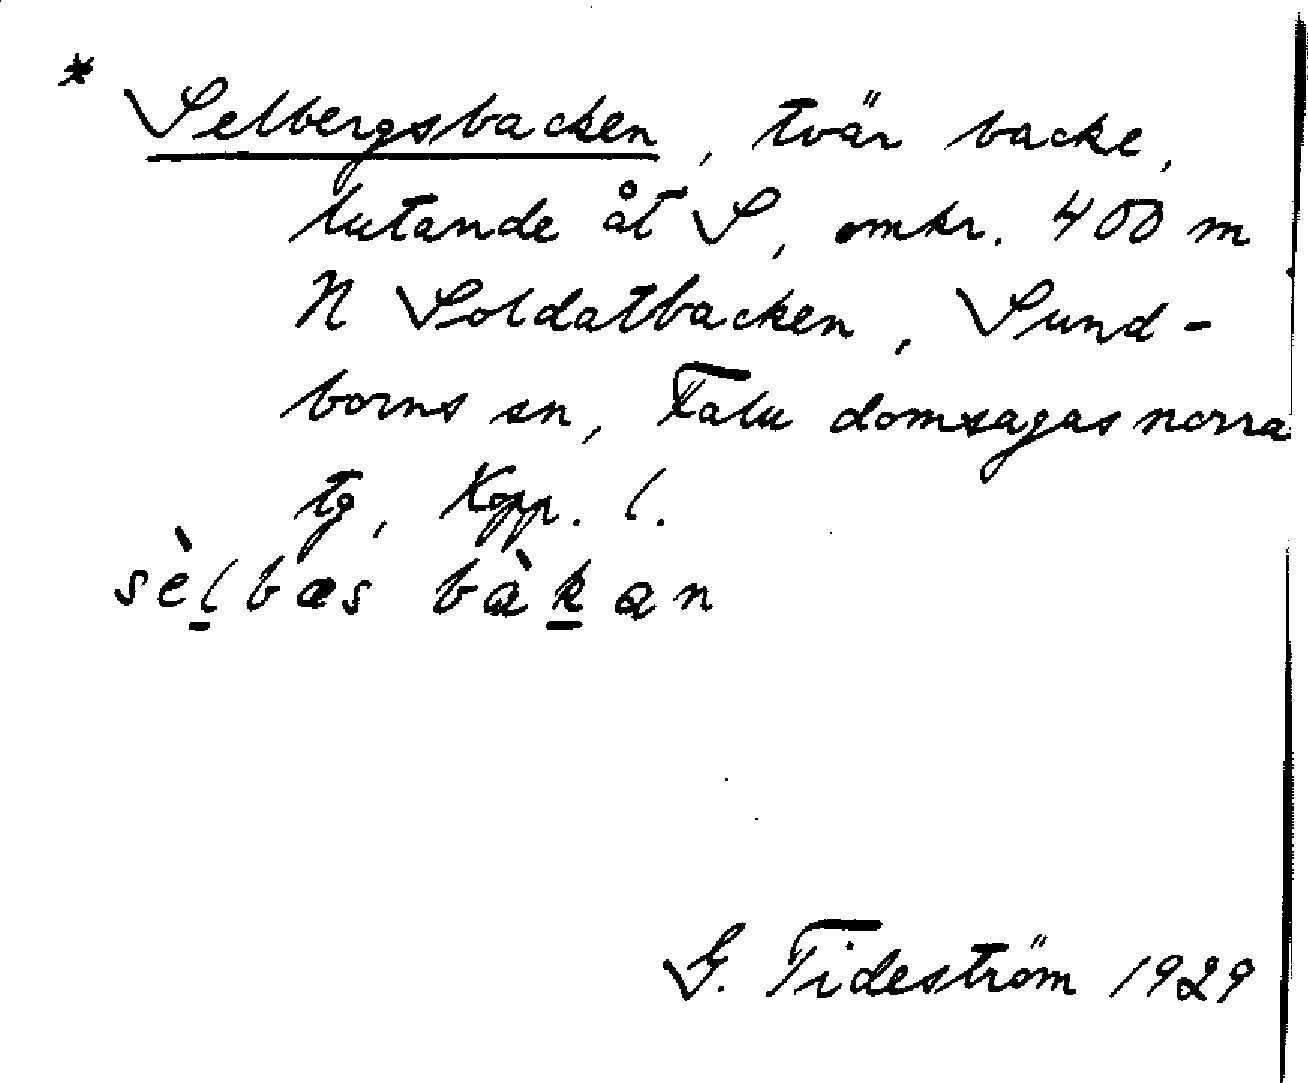 * Selbergsbacken, tvär backe,
lutande åt S, omkr. 400 m
N Soldatbacken, Sund-
borns sn, Falu domsagas norra
tg, Kopp. l.
sèl̠bæs bàk̠an
G. Tideström 1929